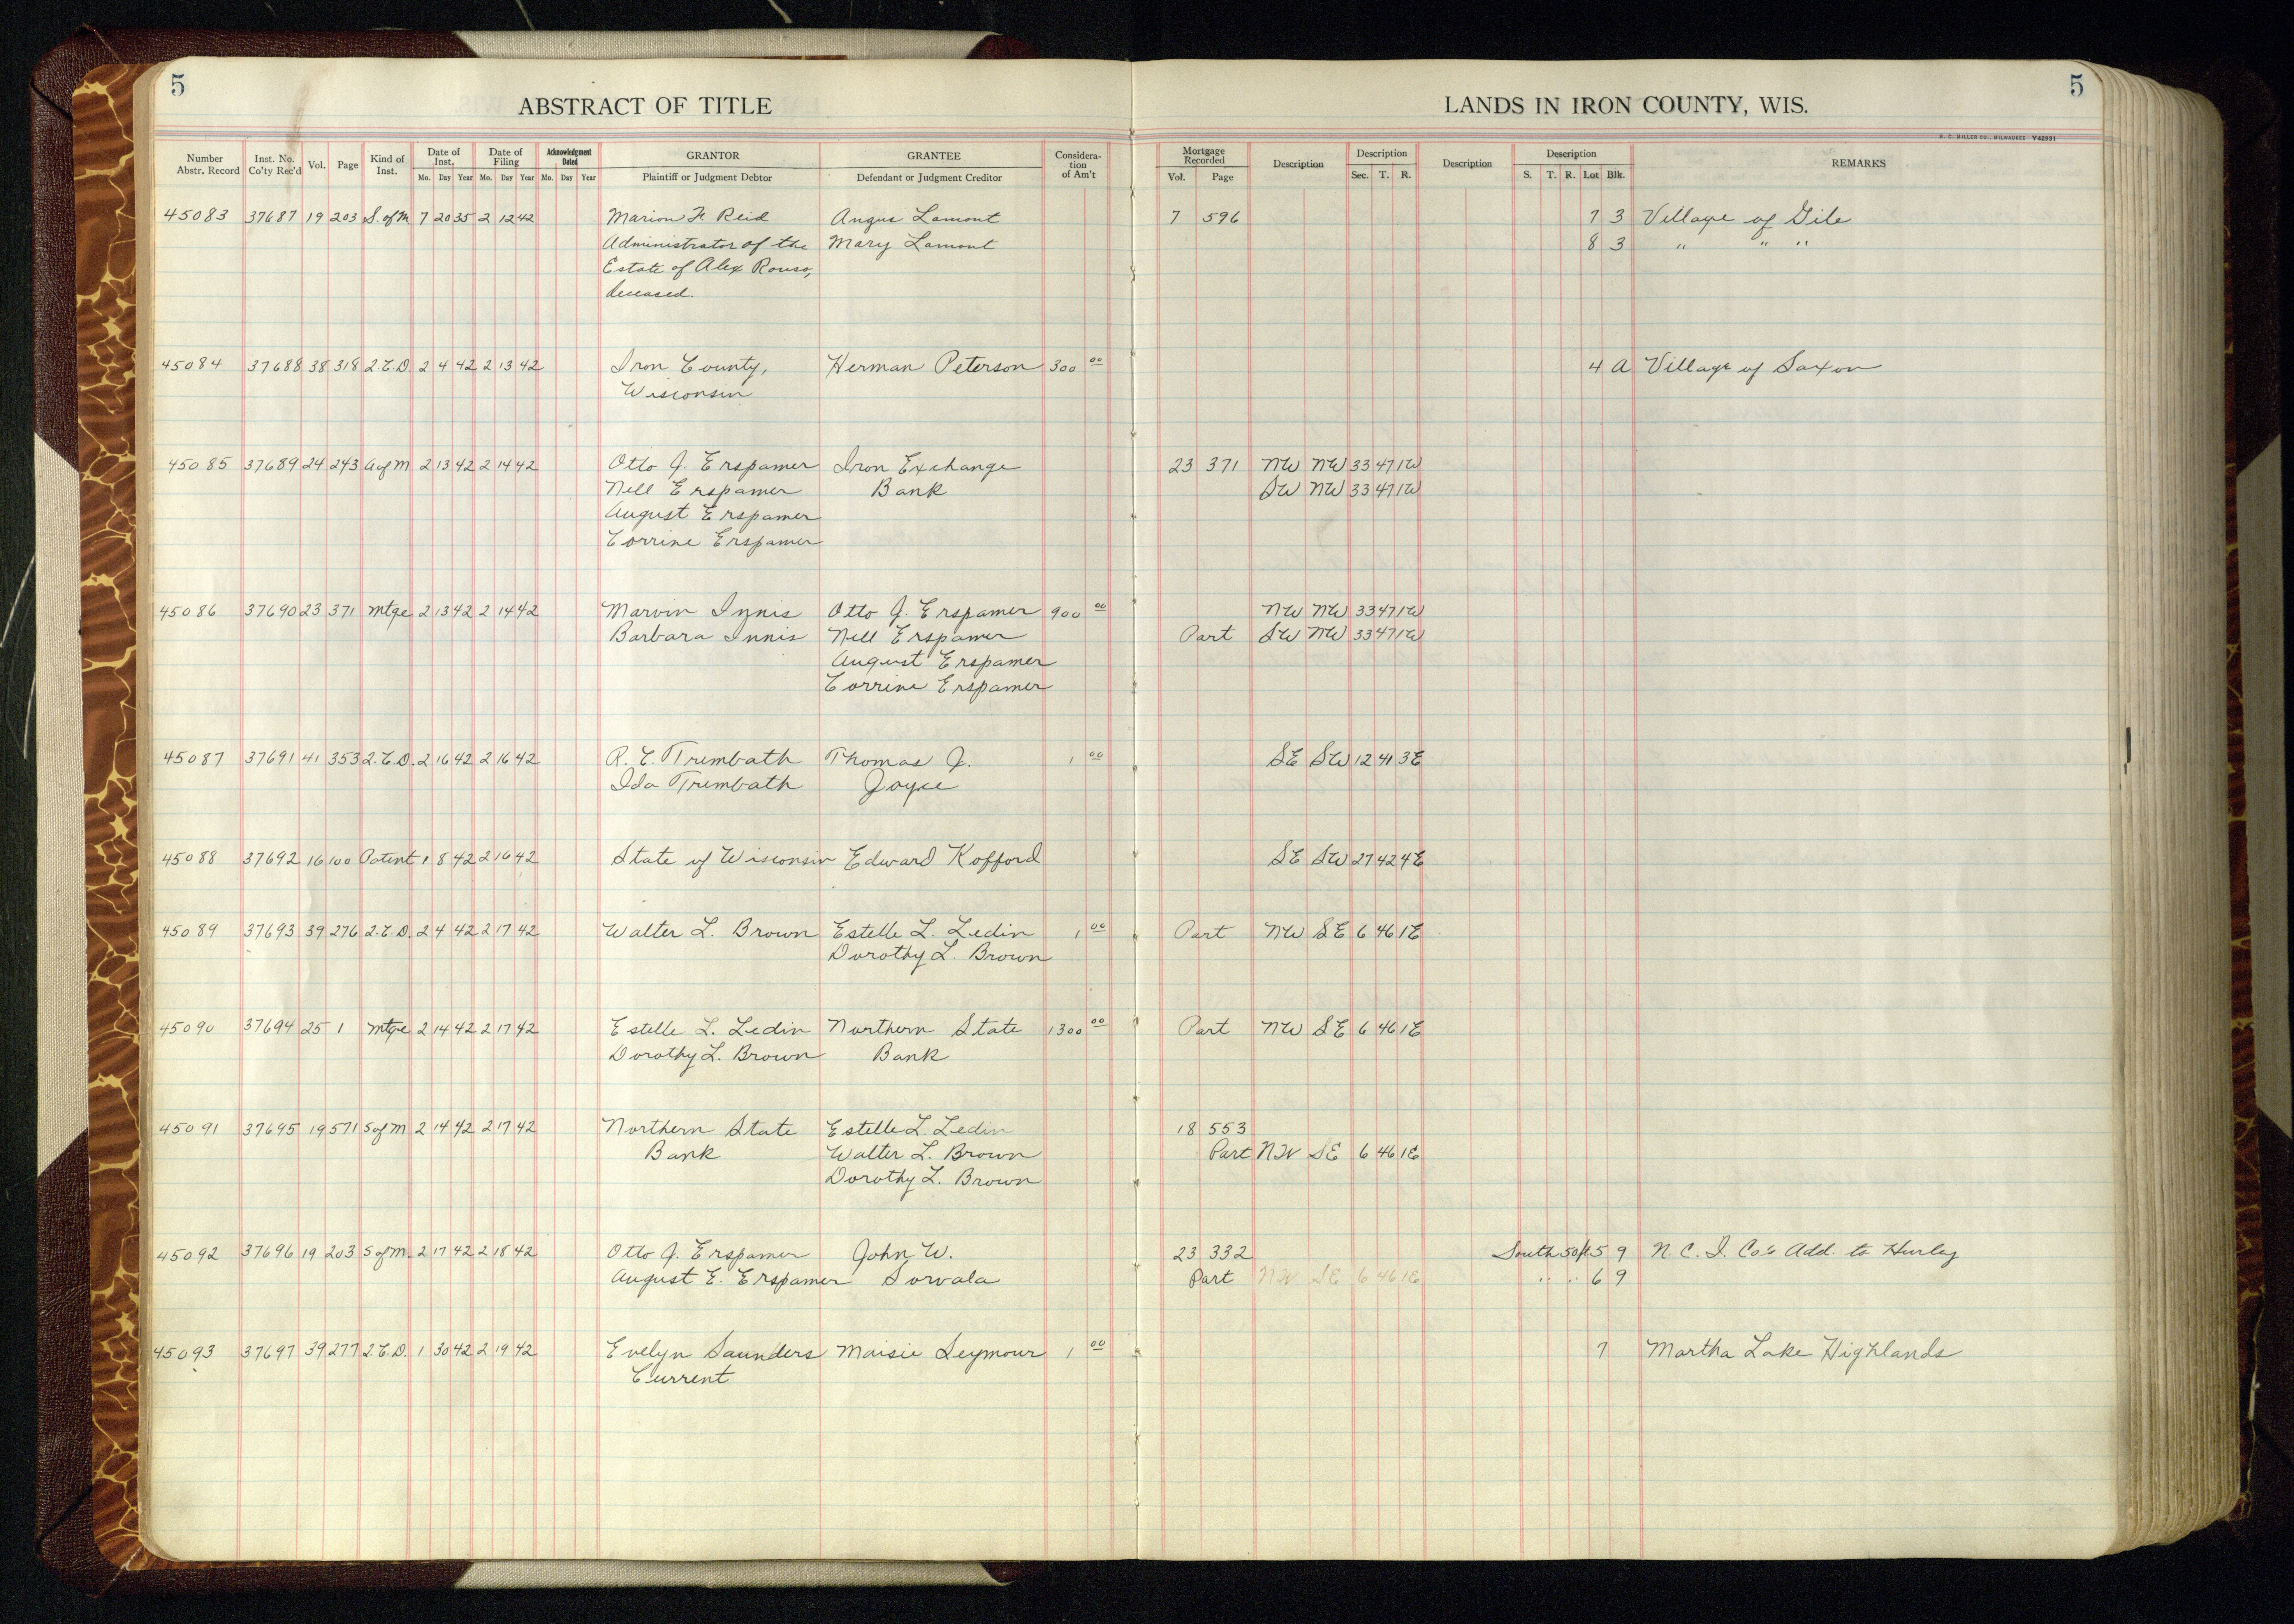 5
5
ABSTRACT OF TITLE
LANDS IN IRON COUNTY, WIS.
H. C. MILLER CO., MILWAUKEE V42931
Number Abstr. Record Inst. No. Co'ty Rec'd Vol. Page Kind of Inst. Date of Inst. Mo. Day Year Date of Filing Mo. Day Year Acknowledgment Dated Mo. Day Year GRANTOR Plaintiff or Judgment Debtor GRANTEE Defendant or Judgment Creditor Consideration of Am't Mortgage Recorded Vol. Page Description Description Sec. T. R. Description Description S. T. R. Lot Blk. REMARKS
45083 37687 19 203 S. of M 7 20 35 2 12 42 Marion F. Reid Angus Lamont 7 596 7 3 Village of Gile
Administrator of the Mary Lamont 8 3 " " "
Estate of Alex Rouso,
deceased.
45084 37688 38 318 2.C.D. 2 4 42 2 13 42 Iron County, Herman Peterson 300 00 4 A Village of Saxon
Wisconsin
45085 37689 24 243 A of M 2 13 42 2 14 42 Otto J. Erspamer Iron Exchange 23 371 NW NW 33 47 1W
Nell Erspamer Bank SW NW 33 47 1W
August Erspamer
Corrine Erspamer
45086 37690 23 371 Mtge 2 13 42 2 14 42 Marvin Innis Otto J. Erspamer 900 00 NW NW 33 47 1W
Barbara Innis Nell Erspamer Part SW NW 33 47 1W
August Erspamer
Corrine Erspamer
45087 37691 41 353 2.C.D. 2 16 42 2 16 42 R. C. Trembath Thomas J. 1 00 SE SW 12 41 3E
Ida Trembath Joyce
45088 37692 16 100 Patent 1 8 42 2 16 42 State of Wisconsin Edward Kofford SE SW 27 42 4E
45089 37693 39 276 2.C.D. 2 4 42 2 17 42 Walter L. Brown Estelle L. Ledin 1 00 Part NW SE 6 46 1E
Dorothy L. Brown
45090 37694 25 1 Mtge 2 14 42 2 17 42 Estelle L. Ledin Northern State 1300 00 Part NW SE 6 46 1E
Dorothy L. Brown Bank
45091 37695 19 571 S of M 2 14 42 2 17 42 Northern State Estelle L. Ledin 18 553
Bank Walter L. Brown Part NW SE 6 46 1E
Dorothy L. Brown
45092 37696 19 203 S of M. 2 17 42 2 18 42 Otto J. Erspamer John W. 23 332 South 50ft 5 9 N. C. I. Co's Add. to Hurley
August E. Erspamer Sorvala Part NW SE 6 46 1E " " 6 9
45093 37697 39 277 2.C.D. 1 30 42 2 19 42 Evelyn Saunders Maisie Seymour 1 00 7 Martha Lake Highlands
Current